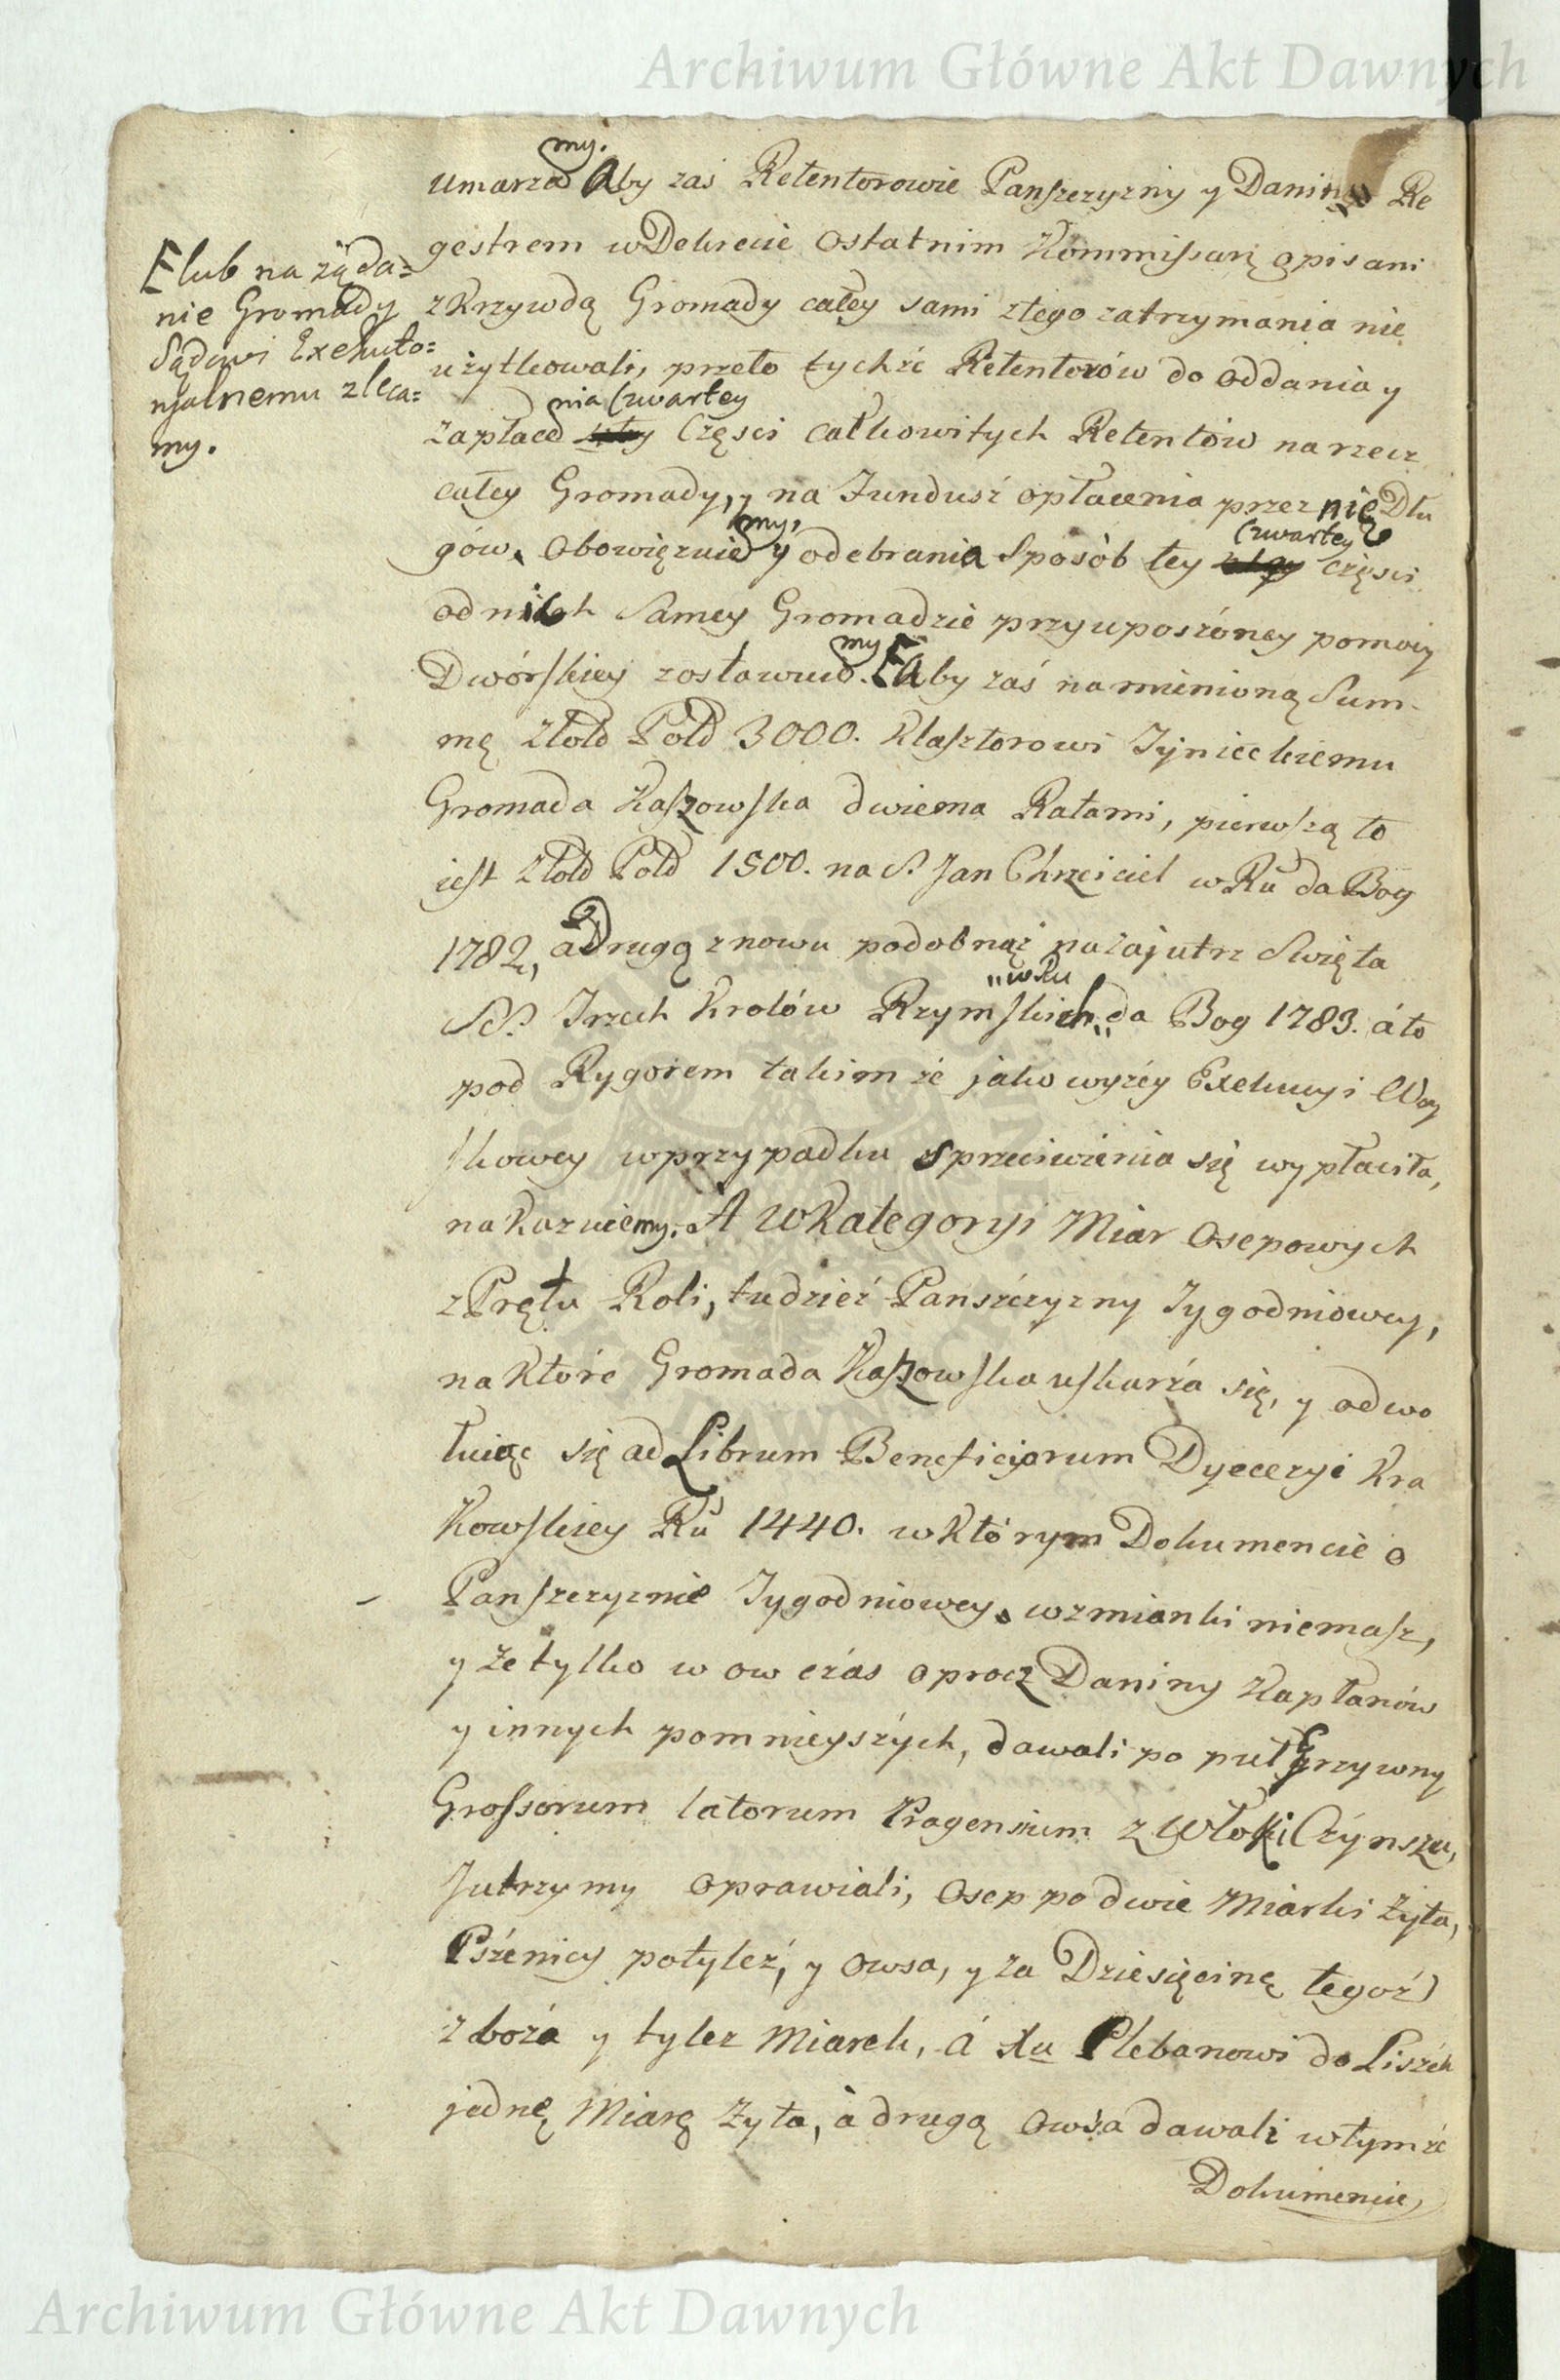 Archiwum Główne Akt Dawnych
umarzamy. Aby zaś Retentorowie Panszczyzny y Daniny Re
gestrem w Dekrecie Ostatnim Kommissarſ. opisani
z Krzywdą Gromady całey sami z tego zatrzymania nie
użytkowali, przeto tychże Retentorów do oddania y
zapłacenia czwartey Części całkowitych Retentów na rzecz
całey Gromady, y na Fundusz opłacenia przez nię Dłu
gów, obowięzuiemy, y odebrania Sposób tey czwartey Części
od nich Samey Gromadzie przy uposżóney pomocy
Dwórſkiey zostawuiemy. Aby zaś namienioną Sum-
mę Złotd Pold 3000. Klasztorowi Tynieckiemu
Gromada Kaſzowſka dwiema Ratami, pierwſzą to
ieſt Złotd Pold 1500. na S. Jan Chrzciciel w Ru da Bog
1782, a Drugą znowu podobnąż nazajutrz Swięta
SS. Trzech Krolów Rzymſkich w Ru da Bog 1783. á to
pod Rygorem takim że jako wyżéy Exekucyi Woy
ſkowey w przypadku sprzeciwienia się wypłaciła,
nakazuiemy. A w Kategoryi Miar Osepowych
z Prętu Roli, tudzież Pansżczyzny Tygodniowey,
na które Gromada Kaſzowſka uſkarża się, y odwo
łuiąc się ad Librum Beneficiorum Dyecezyi Kra
Kowſkiey Ru 1440. w którym Dokumencie o
Panſzczyznie Tygodniowey, wzmianki niemaſz,
y że tylko w ow czas oprocz Daniny Kapłanów
y innych pomnieyszych, dawali po puł grzywny
Groſsorum latorum Pragensium z Włoki Czynszu,
Jutrzyny oprawiali, Osep po dwie Miarki żyta,
Pszenicy po tyleż, y Owsa, y za Dziesięcinę tegoż
zboża y tylez Miarek, á Xu Plebanowi do Liszek
jednę Miarę Zyta, à drugą Owsa dawali w tymże
Dokumencie,
lub na żąda=
nie Gromady
Sądowi Exekuto=
ryalnemu zleca=
my.
Archiwum Główne Akt Dawnych